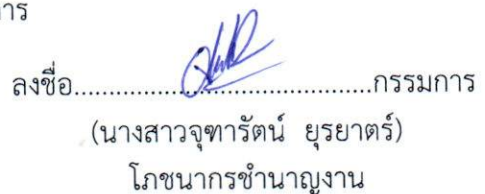 การ
ลงชื่อ....................................กรรมการ
(นางสาวจุฑารัตน์ ยุรยาตร์)
โภชนากรชำนาญงาน